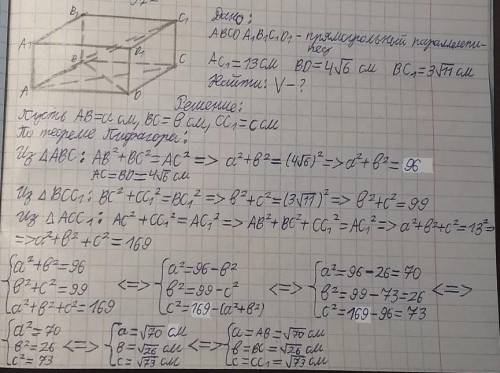 B₁
C₁
A₁
D₁
B
C
A
D
Дано:
ABCD A₁B₁C₁D₁ - прямоугольный параллелепи-
пед
AC₁ = 13 см BD = 4√6 см BC₁ = 3√11 см
Найти: V - ?
Решение:
Пусть AB = a см, BC = в см, CC₁ = c см
По теореме Пифагора:
Из △ABC: AB² + BC² = AC² => a² + в² = (4√6)² => a² + в² = 96
AC = BD = 4√6 см
Из △BCC₁: BC² + CC₁² = BC₁² => в² + c² = (3√11)² => в² + c² = 99
Из △ACC₁: AC² + CC₁² = AC₁² => AB² + BC² + CC₁² = AC₁² => a² + в² + c² = 13² =>
=> a² + в² + c² = 169
{a² + в² = 96 <=> {a² = 96 - в² <=> {a² = 96 - 26 = 70 <=>
в² + c² = 99 в² = 99 - c² в² = 99 - 73 = 26
a² + в² + c² = 169 c² = 169 - (a² + в²) c² = 169 - 96 = 73
{a² = 70 <=> {a = √70 см <=> {a = AB = √70 см
в² = 26 в = √26 см в = BC = √26 см
c² = 73 c = √73 см c = CC₁ = √73 см